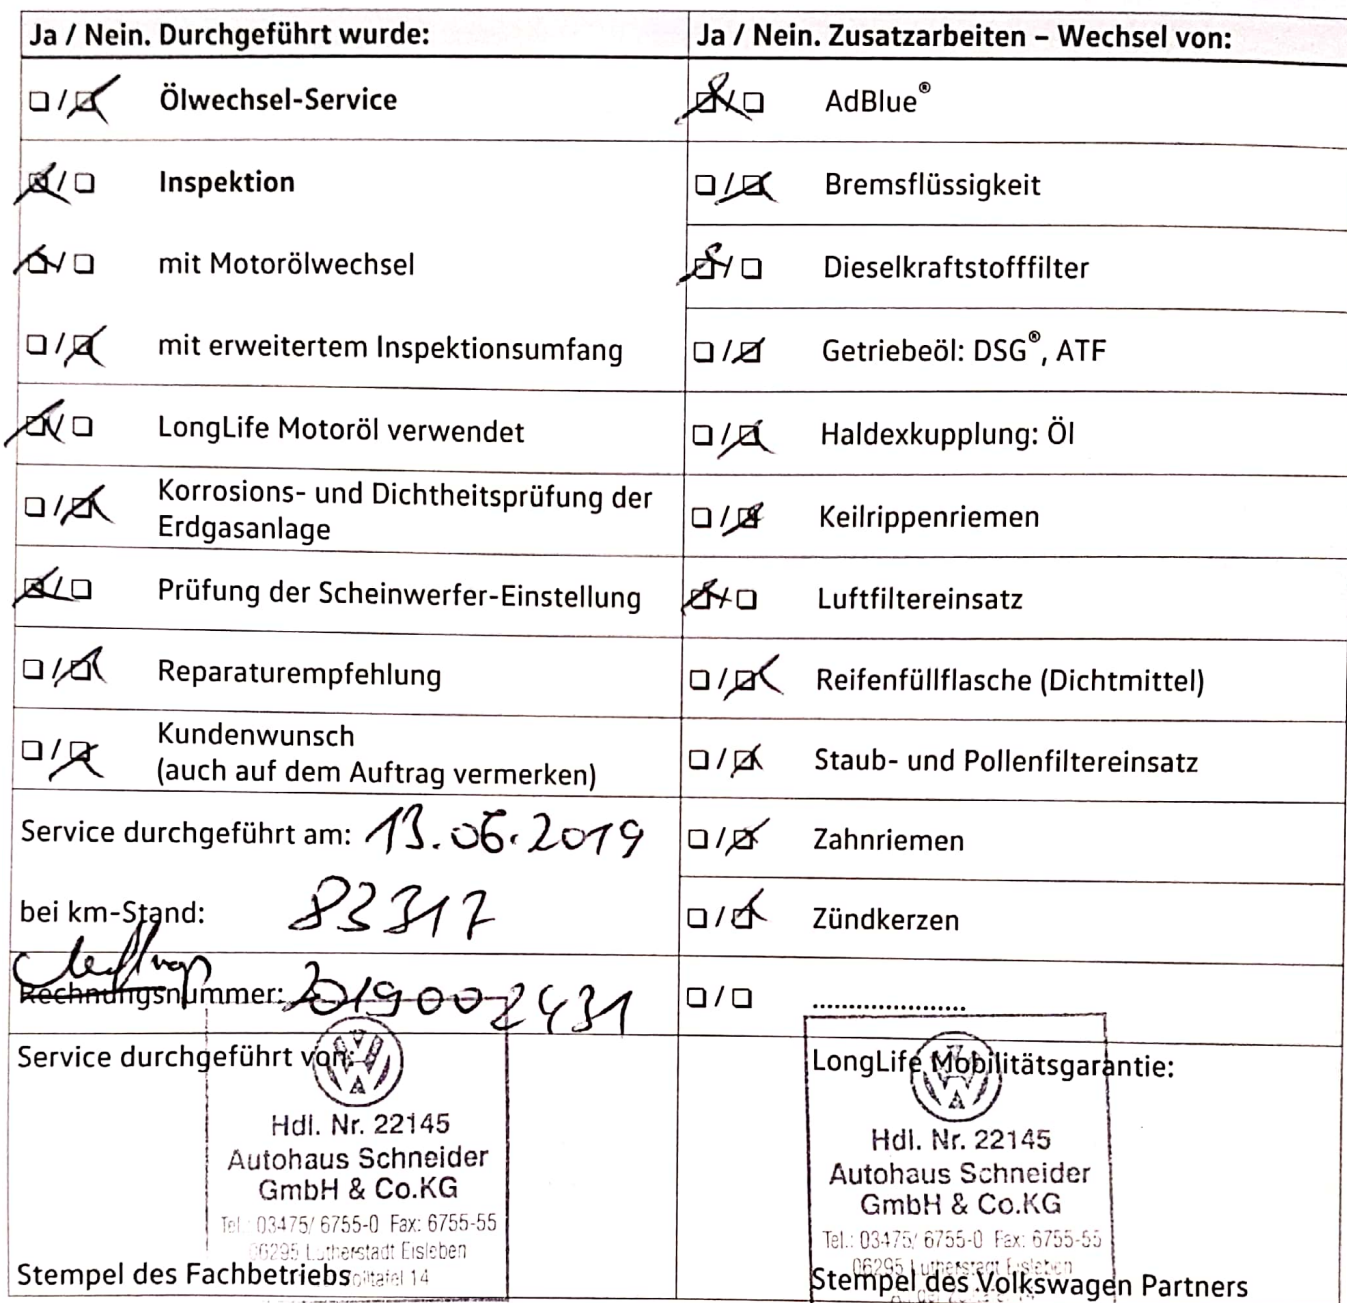 Ja / Nein. Durchgeführt wurde:
☐ / ☒ Ölwechsel-Service
☒ / ☐ Inspektion
☒ / ☐ mit Motorölwechsel
☐ / ☒ mit erweitertem Inspektionsumfang
☒ / ☐ LongLife Motoröl verwendet
☐ / ☒ Korrosions- und Dichtheitsprüfung der
Erdgasanlage
☒ / ☐ Prüfung der Scheinwerfer-Einstellung
☐ / ☒ Reparaturempfehlung
☐ / ☒ Kundenwunsch
(auch auf dem Auftrag vermerken)
Service durchgeführt am: 13.06.2019
bei km-Stand: 83317
Auftrags
Rechnungsnummer: 2019002431
Service durchgeführt von:
Hdl. Nr. 22145
Autohaus Schneider
GmbH & Co.KG
Tel.: 03475/ 6755-0 Fax: 6755-55
06295 Lutherstadt Eisleben
14
Stempel des Fachbetriebs
Ja / Nein. Zusatzarbeiten – Wechsel von:
☒ / ☐ AdBlue®
☐ / ☒ Bremsflüssigkeit
☒ / ☐ Dieselkraftstofffilter
☐ / ☒ Getriebeöl: DSG®, ATF
☐ / ☒ Haldexkupplung: Öl
☐ / ☒ Keilrippenriemen
☒ / ☐ Luftfiltereinsatz
☐ / ☒ Reifenfüllflasche (Dichtmittel)
☐ / ☒ Staub- und Pollenfiltereinsatz
☐ / ☒ Zahnriemen
☐ / ☒ Zündkerzen
☐ / ☐ ......................
LongLife Mobilitätsgarantie:
Hdl. Nr. 22145
Autohaus Schneider
GmbH & Co.KG
Tel.: 03475/ 6755-0 Fax: 6755-55
06295 Lutherstadt Eisleben
Stempel des Volkswagen Partners